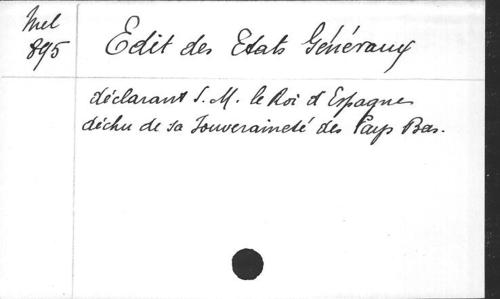 Mel
895
Edit des Etats Généraux
déclarant S. M. le Roi d'Espagne
déchu de sa Souveraineté des Pays Bas.